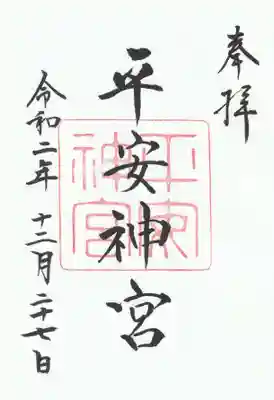 奉拝
平安神宮
平安神宮
令和二年 十二月二十七日